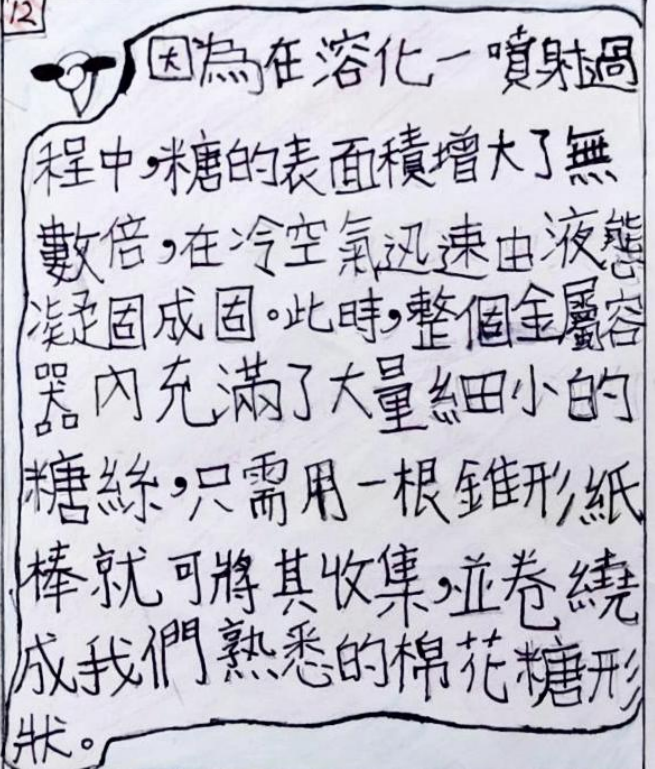 12
因為在溶化一噴射過
程中,糖的表面積增大了無
數倍,在冷空氣迅速由液態
凝固成固。此時,整個金屬容
器內充滿了大量細小的
糖絲,只需用一根錐形紙
棒就可將其收集,並卷繞
成我們熟悉的棉花糖形
狀。